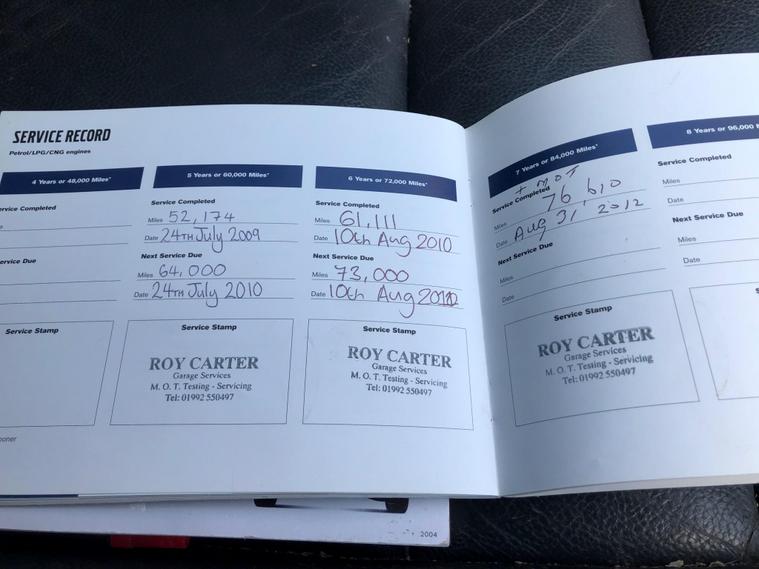 SERVICE RECORD
Petrol/LPG/CNG engines
4 Years or 48,000 Miles*
Service Completed
Service Due
Service Stamp
5 Years or 60,000 Miles*
Service Completed
Miles 52,174
Date 24TH July 2009
Next Service Due
Miles 64,000
Date 24TH July 2010
Service Stamp
ROY CARTER
Garage Services
M. O. T. Testing - Servicing
Tel: 01992 550497
6 Years or 72,000 Miles*
Service Completed
Miles 61,111
Date 10th Aug 2010
Next Service Due
Miles 73,000
Date 10th Aug
Service Stamp
ROY CARTER
Garage Services
M. O. T. Testing - Servicing
Tel: 01992 550497
7 Years or 84,000 Miles*
+ MOT
Service Completed
Miles 76 610
Date Aug 31, 2012
Next Service Due
Miles
Date
Service Stamp
ROY CARTER
Garage Services
M. O. T. Testing - Servicing
Tel: 01992 550497
8 Years or 96,000
Service Completed
Miles
Date
Next Service Due
Miles
Date
2004